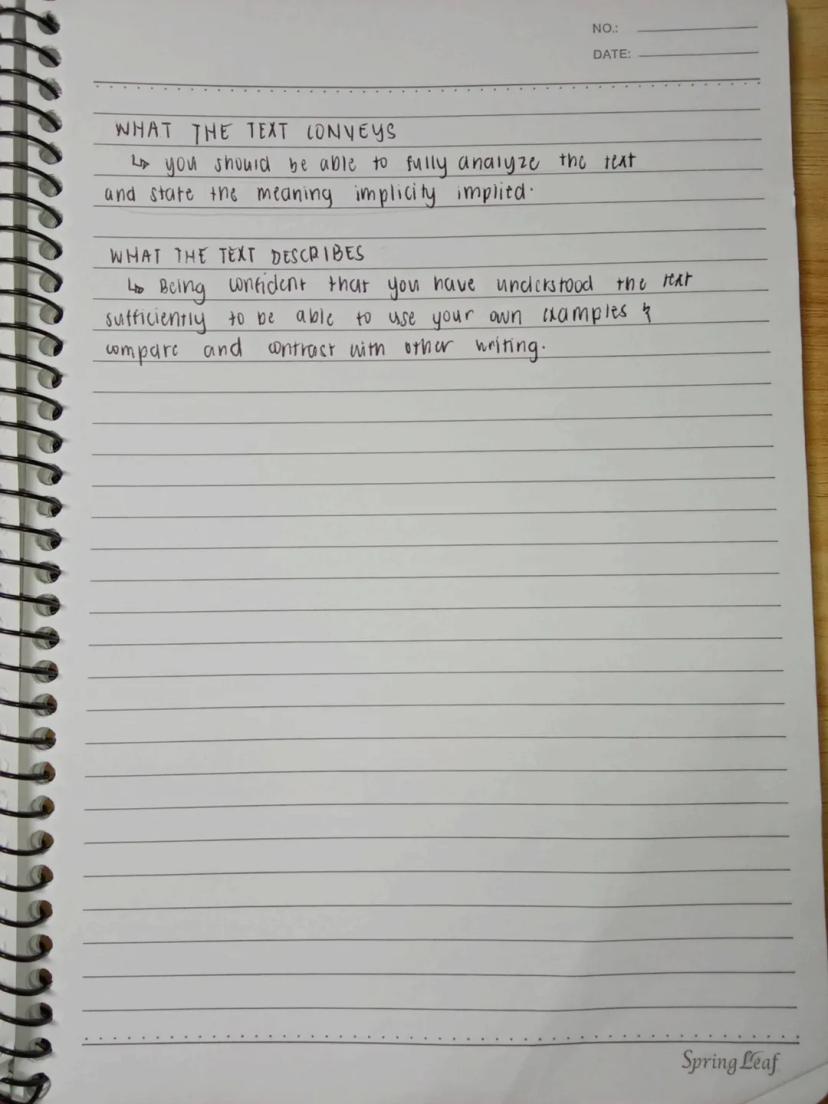 NO.:
DATE:
WHAT THE TEXT CONVEYS
↳ you should be able to fully analyze the text
and state the meaning implicity implied.
WHAT THE TEXT DESCRIBES
↳ Being confident that you have understood the text
sufficiently to be able to use your own examples &
compare and contrast with other writing.
Spring Leaf